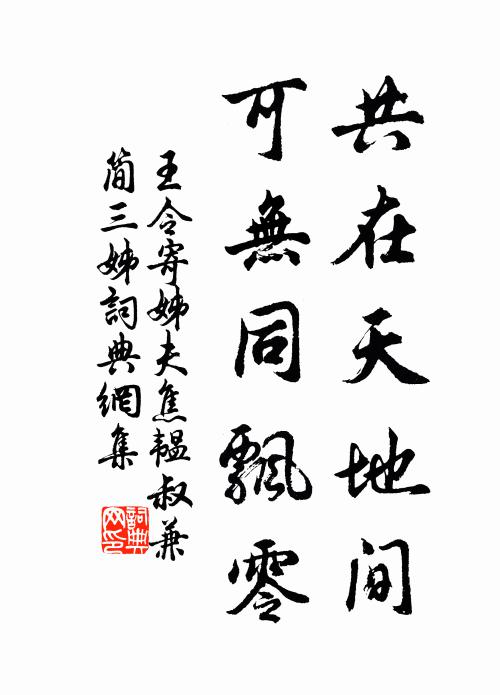 共在天地間
可無同飄零
王令寄姊夫焦韞叔兼
简三姊詞典網集
詞典网印